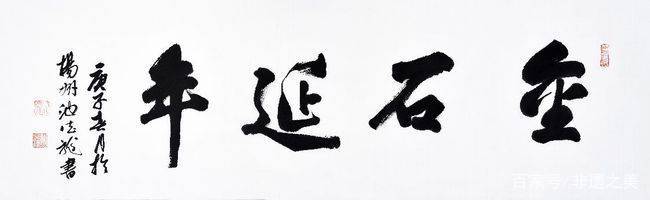 金石延年
庚子春月於
揚州池書
百家号/非遗之美